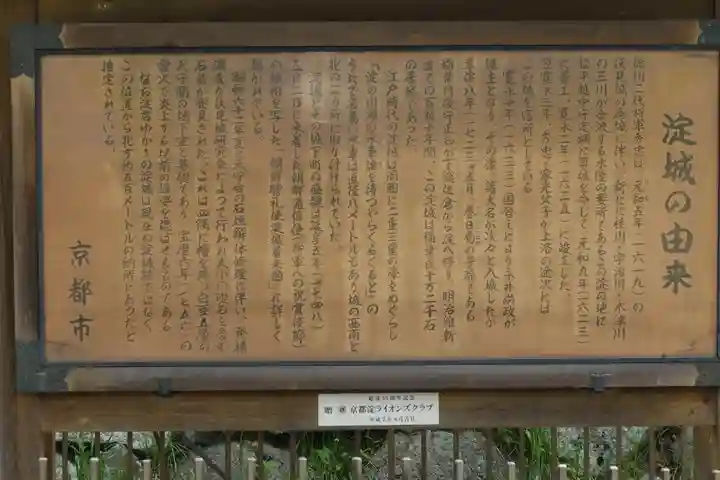 淀城の由来
徳川二代将軍秀忠は、元和五年(一六一九)の
伏見城の廃城に伴い、新たに桂川・宇治川・木津川
の三川が合流する水陸の要所であるこの淀の地に
松平越中守定綱に築城を命じ、元和九年(一六二三)
に着工、寛永二年(一六二五)に竣工した。
翌寛永三年、秀忠、家光父子が上洛の途次には
この城を宿所としている
寛永十年(一六三三)国替えにより永井尚政が
城主となり、その後、諸大名が次々と入城したが
享保八年(一七二三)五月、春日局の子孫である
稲葉丹後守正知が下総佐倉から淀へ移り、明治維新
までの百数十年間、この淀城は稲葉氏十万二千石
の居城であった。
江戸時代の淀城は周囲に二重三重の濠をめぐらし
「淀の川瀬の水車誰を待つやらくるくると」の
うたで名高い水車は直径八メートルもあり城の西南と
北の二ヶ所に取り付けられていた。
淀城とその城下町の盛観は延享五年(一七四八)
五月二日に来着した朝鮮通信使(将軍への祝賀使節)
の様相を写した「朝鮮聘礼使淀城着来図」に詳しく
描かれている。
昭和六十二年夏に天守台の石垣解体修理に伴い、発掘
調査が伏見城研究会によって行われ大小の礎石を含む
石蔵が発見された。これは四隅に櫓を持つ白亜五層の
天守閣の地下室と基礎であり、宝暦六年(一七五六)の
雷火で炎上する以前の雄姿を偲ばせるものである
なお淀君ゆかりの淀城は現在の淀城跡ではなく
この位置から北方約五百メートルの納所にあったと
推定されている。
京都市
贈 京都淀ライオンズクラブ